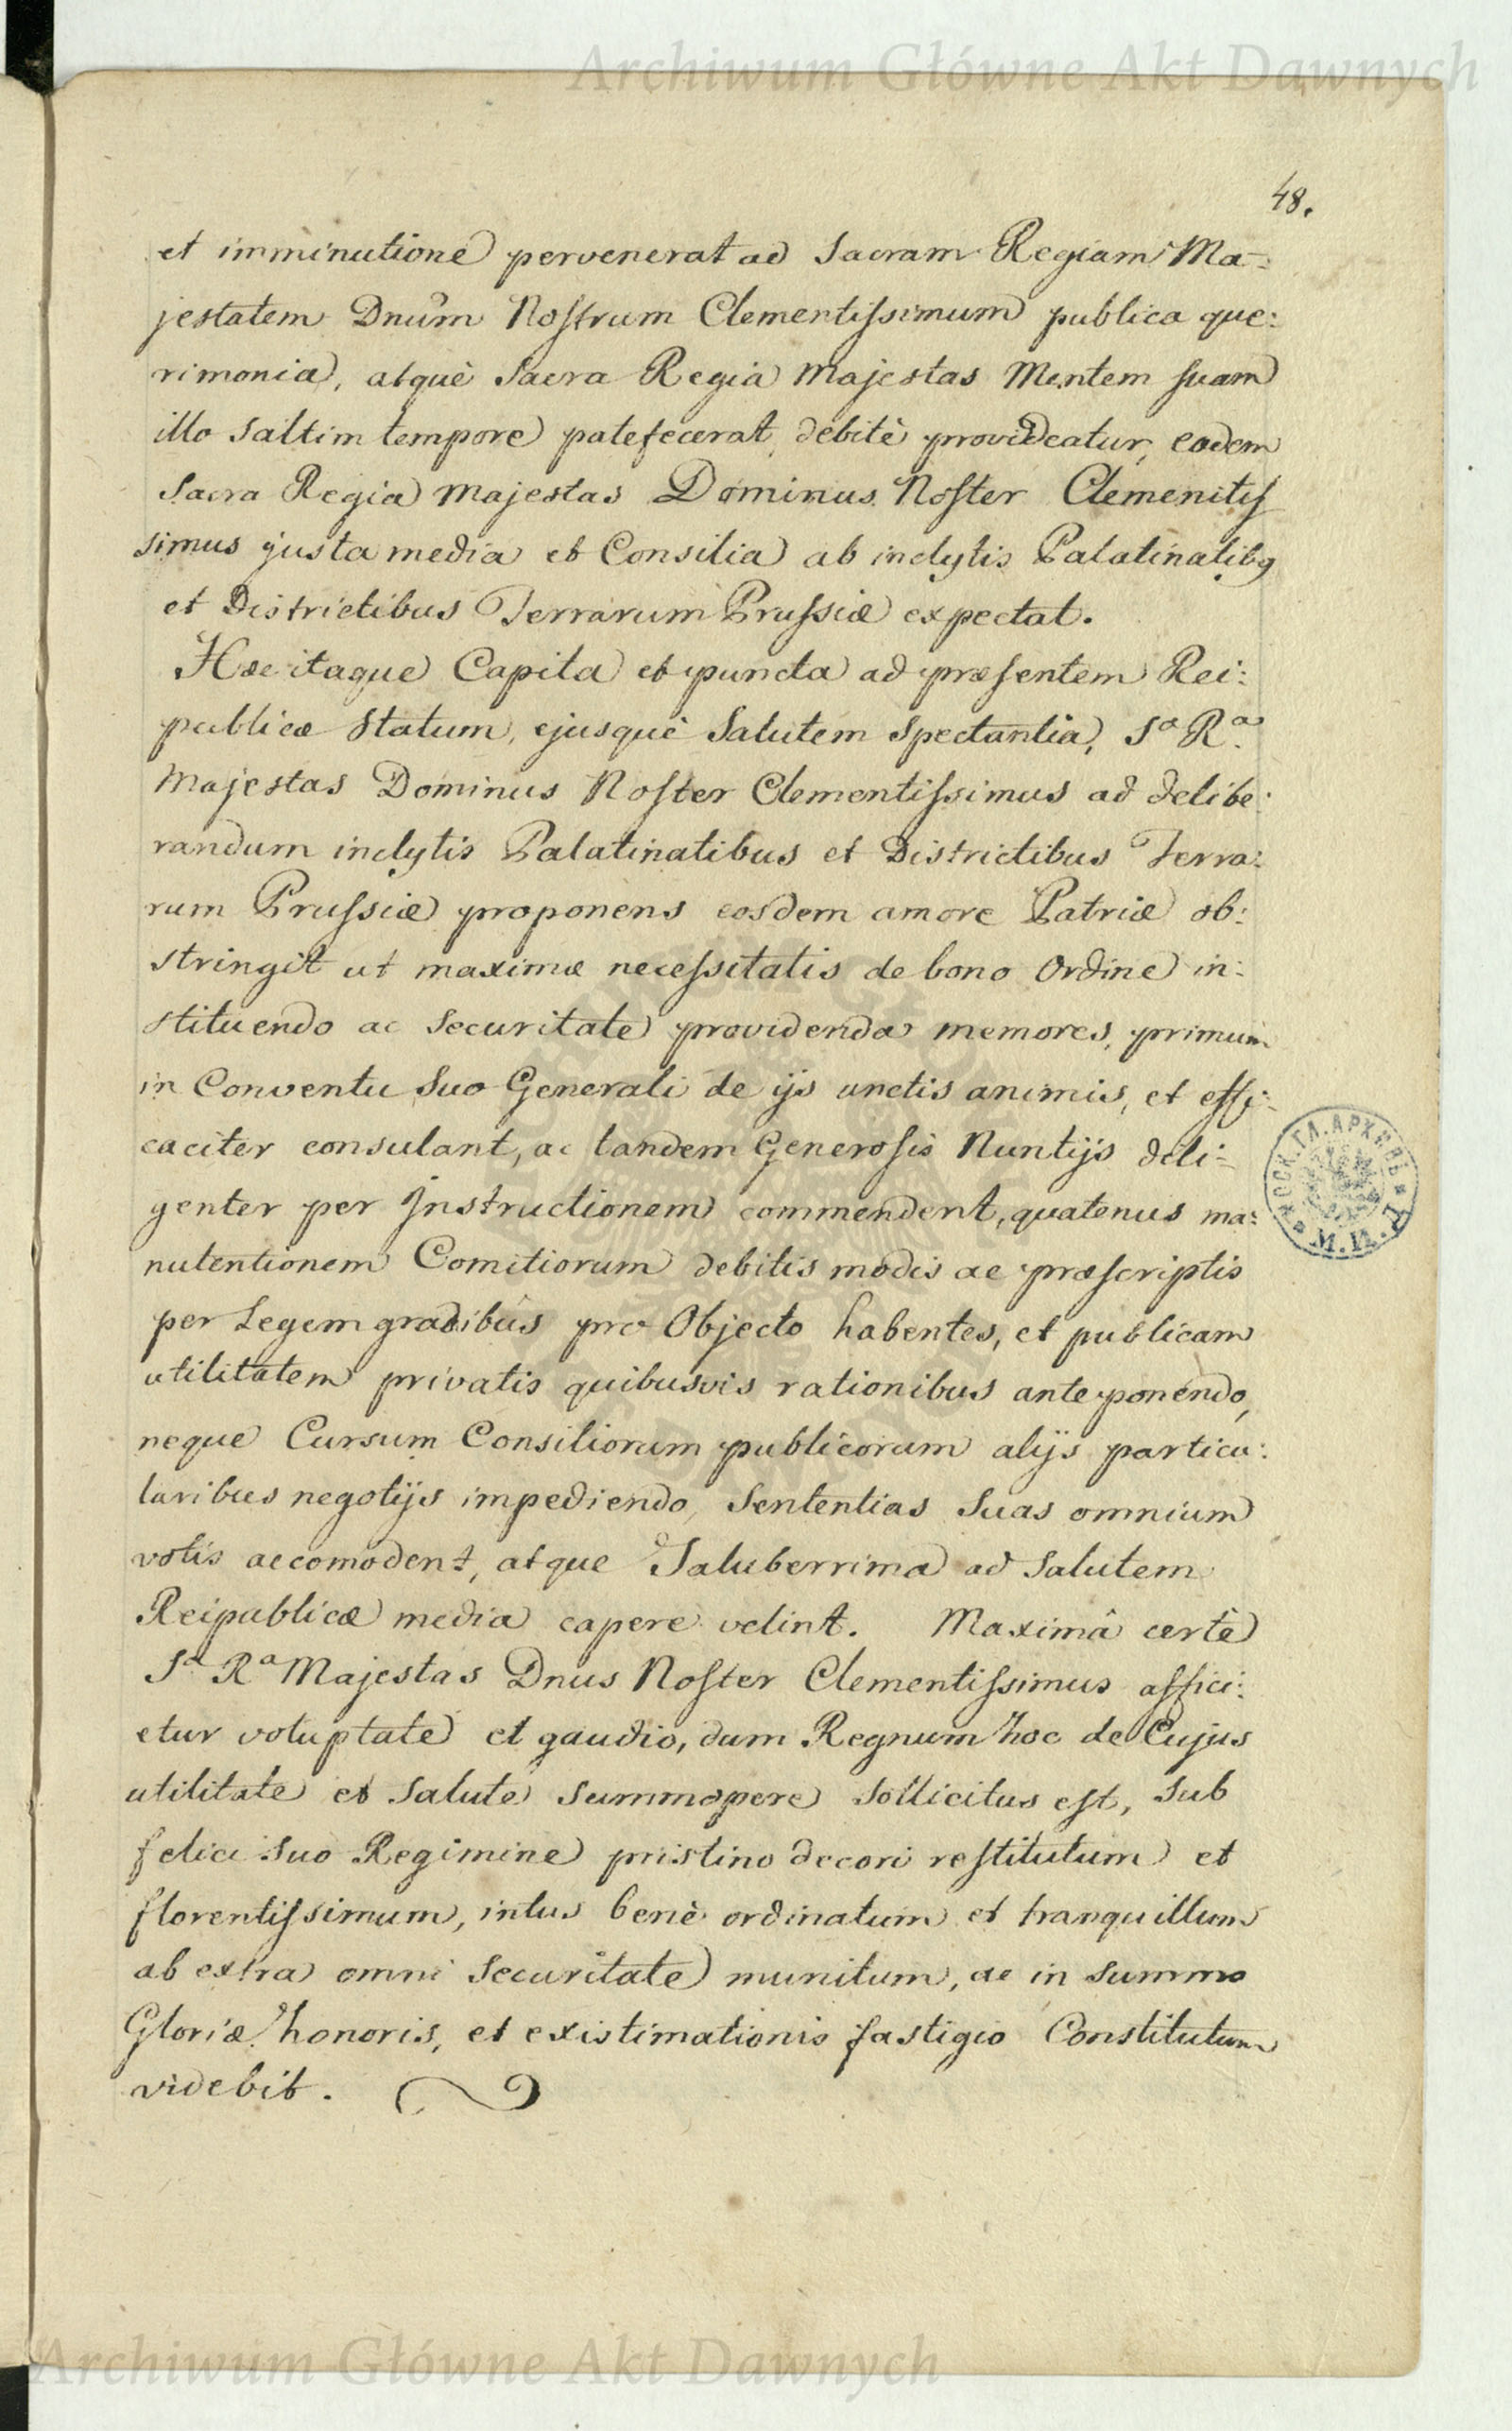 Archiwum Główne Akt Dawnych
48.
et imminutione pervenerat ad Sacram Regiam Ma-:
jestatem Dnum Nostrum Clementissimum publica que:
rimonia, atquè Sacra Regia Majestas Mentem suam
illo Saltim tempore patefecerat, debitè provideatur, eadem
Sacra Regia Majestas Dominus Noster Clemenitis
simus justa media et Consilia ab inclytis Palatinatibq
et Districtibus Terrarum Prussiæ expectat.
Hæc itaque Capita et puncta ad præsentem Rei:
publicæ Statum, ejusquè Salutem Spectantia, Sa Ra
Majestas Dominus Noster Clementissimus ad delibe:
randum inclytis Palatinatibus et Districtibus Terra:
rum Prussiæ proponens eosdem amore Patriæ ob:
stringit ut maximæ necessitatis de bono Ordine in:
stituendo ac Securitate providenda memores, primum
in Conventu Suo Generali de ijs unctis animis, et effi-:
caciter consulant, ac tandem Generosis Nuntijs deli-:
genter per Instructionem commendent, quatenus ma:
nutentionem Comitiorum debitis modis ac præscriptis
per Legem gradibus pro Objecto habentes, et publicam
utilitatem privatis quibusvis rationibus anteponendo,
neque Cursum Consiliorum publicorum alijs particu:
laribus negotijs impediendo, Sententias Suas omnium
votis accomodent, atque Saluberrima ad Salutem
Reipublicæ media capere velint. Maximâ certè
Sa Ra Majestas Dnus Noster Clementissimus affici:
etur voluptate et gaudio, dum Regnum hoc de Cujus
utilitate et Salute Summopere Sollicitus est, Sub
felici Suo Regimine pristino decori restitutum et
florentissimum, intus benè ordinatum et tranquillum
ab extra omni Securitate munitum, ac in Summo
Gloriæ honoris, et existimationis fastigio Constitutum
videbit.
Archiwum Główne Akt Dawnych